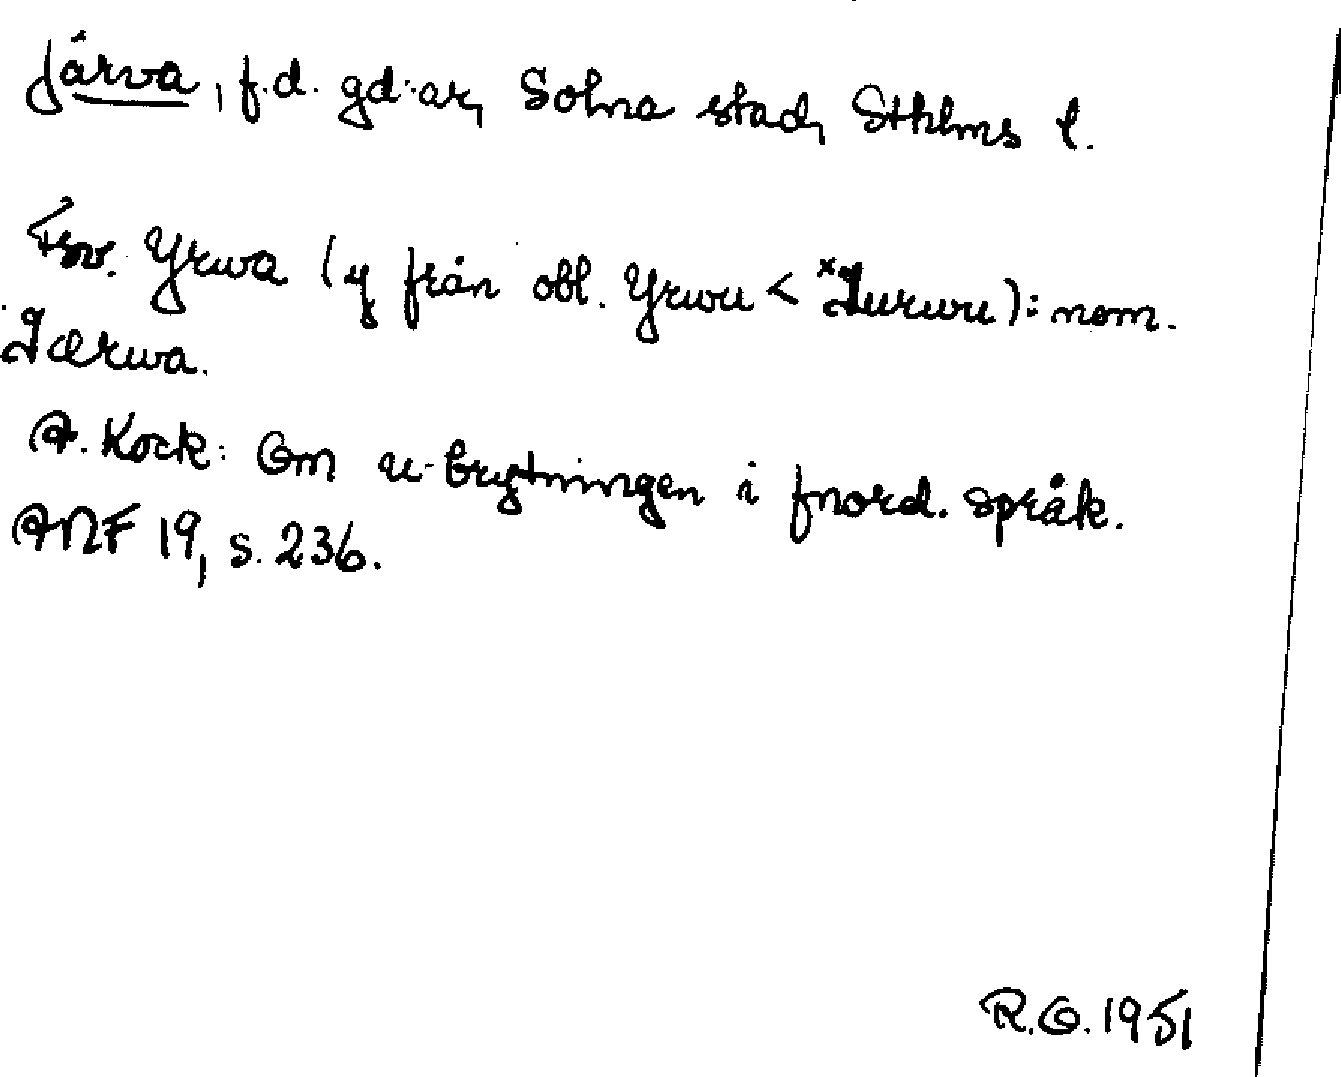 Järva, f.d. gd:ar, Solna stad, Sthlms l.
Fsv. Yrwa (y från obl. Yrwu < *Iurwu): nom.
Iærwa.
A. Kock: Om u-brytningen i fnord. språk.
ANF 19, s. 236.
R.O. 1951